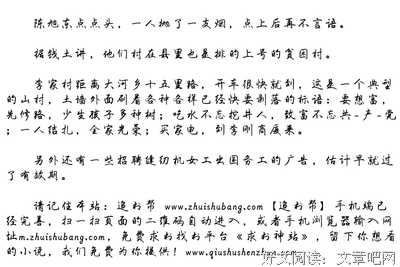 陈旭东点点头，一人抛了一支烟，点上后再不言语。
据钱土讲，他们村在县里也是排的上号的贫困村。
李家村距离大河乡十五里路，开车很快就到，这是一个典型
的山村，土墙外面刷着各种各样已经快要剥落的标语：要想富，
先修路，少生孩子多种树；吃水不忘挖井人，致富不忘共-产-党
；一人结扎，全家光荣；买家电，到李刚商展来。
另外还有一些招聘缝纫机女工出国务工的广告，估计早就过
了有效期。
请记住本站：追书帮 www.zhuishubang.com【追书帮】手机端已
经完善，扫一扫页面的二维码自动进入，或者手机浏览器输入网
址m.zhuishubang.com，免费求书找书平台《求书神站》，留下你想看
的小说，我们免费为你提供！www.qiushushenzhan.com
好文阅读：文章吧网